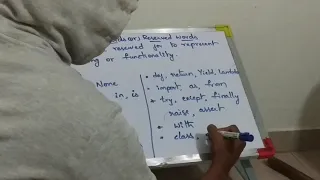 Reserved Words
reserved for to represent
or functionality.
None
in, is
• def, return, Yield, lambda
• import, as, from
• try, except, finally
raise, assert
• with
• class